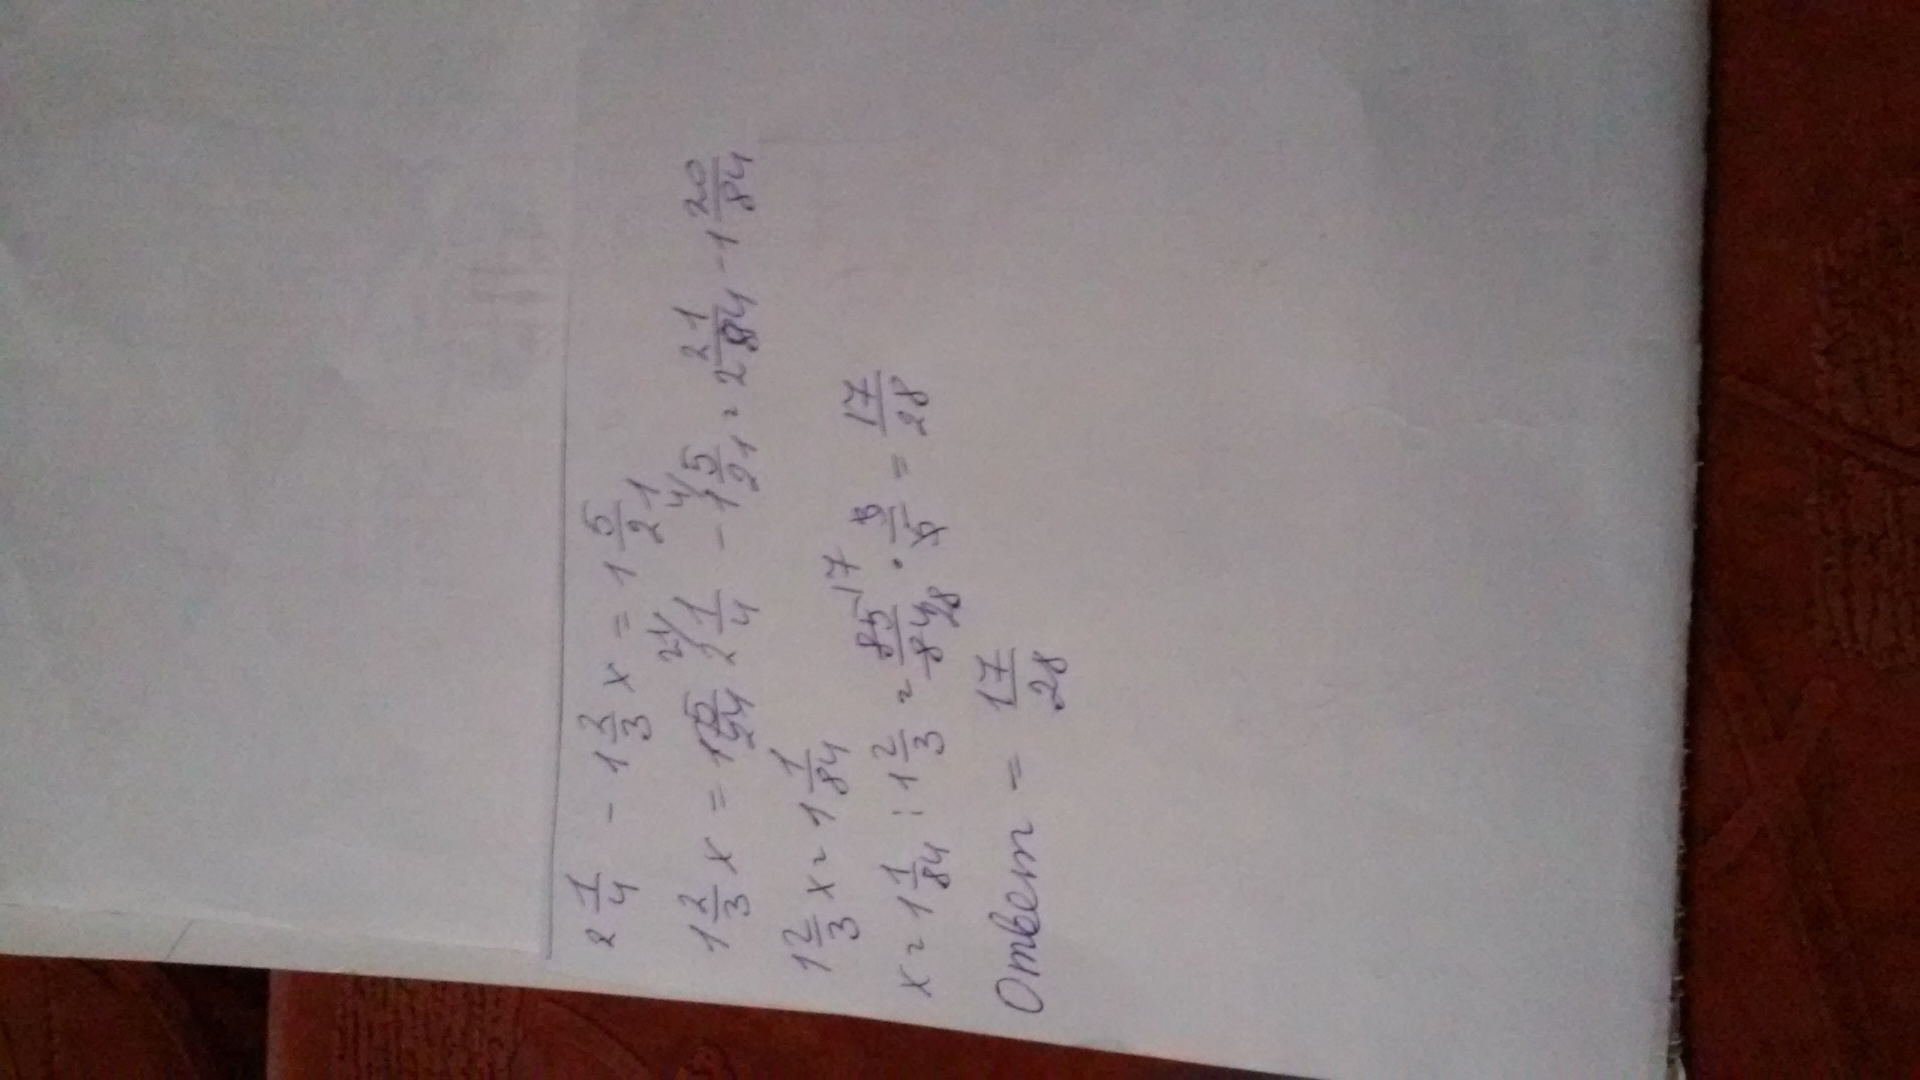 2 1/4 - 1 2/3 x = 1 5/21
1 2/3 x = 21/ 2 1/4 - 4/ 1 5/21 = 2 21/84 - 1 20/84
1 2/3 x = 1 1/84
x = 1 1/84 : 1 2/3 = 85/84 17 28 · 3/5 = 17/28
Ответ = 17/28